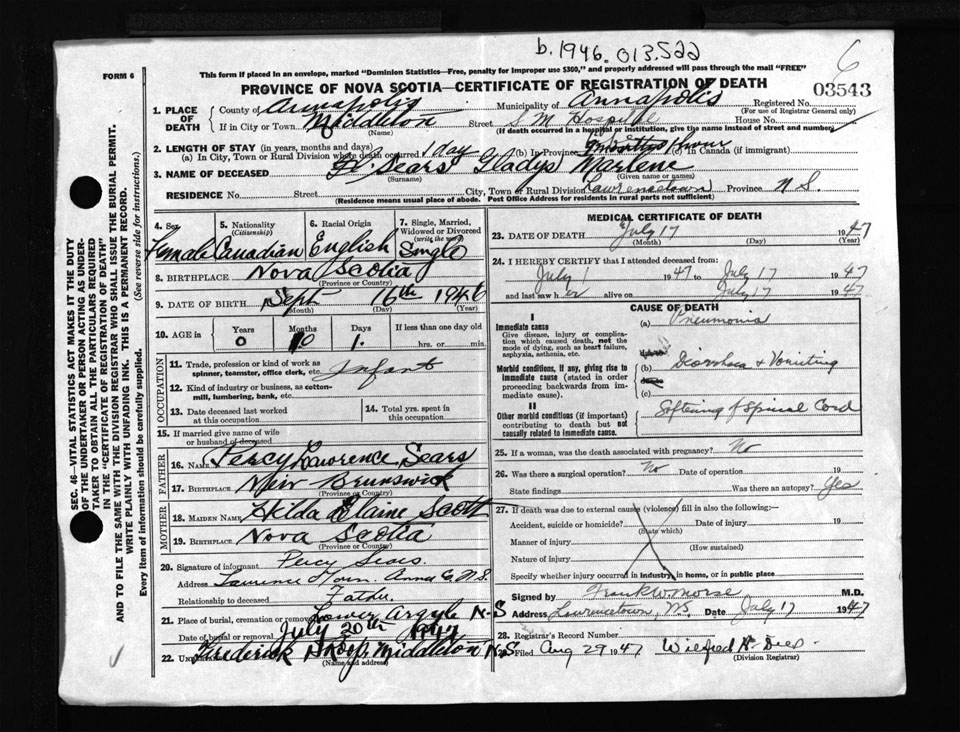 b. 1946. 013522
6
FORM 6
This form if placed in an envelope, marked "Dominion Statistics—Free, penalty for improper use $300," and properly addressed will pass through the mail "FREE"
PROVINCE OF NOVA SCOTIA—CERTIFICATE OF REGISTRATION OF DEATH
03543
1. PLACE OF DEATH
County of Annapolis Municipality of Annapolis Registered No.
(For use of Registrar General only)
If in City or Town Middleton Street S M Hospital House No.
(Name) (If death occurred in a hospital or institution, give the name instead of street and number)
2. LENGTH OF STAY (in years, months and days)
(a) In City, Town or Rural Division where death occurred 1 day (b) In Province (c) In Canada (if immigrant)
3. NAME OF DECEASED Sears Gladys Marlene
(Surname) (Given name or names)
RESIDENCE No. Street City, Town or Rural Division Lawrencetown Province N S.
(Residence means usual place of abode. Post Office Address for residents in rural parts not sufficient)
4. Sex
Female
5. Nationality
(Citizenship)
Canadian
6. Racial Origin
English
7. Single, Married, Widowed or Divorced
(write the word)
Single
8. BIRTHPLACE Nova Scotia
(Province or Country)
9. DATE OF BIRTH Sept 16th 1946
(Month) (Day) (Year)
10. AGE in Years Months Days If less than one day old
0 10 1. hrs. or min.
OCCUPATION
11. Trade, profession or kind of work as spinner, teamster, office clerk, etc. Infant
12. Kind of industry or business, as cotton-mill, lumbering, bank, etc.
13. Date deceased last worked at this occupation
14. Total yrs. spent in this occupation
15. If married give name of wife or husband of deceased
FATHER
16. NAME Percy Lawrence Sears
17. BIRTHPLACE New Brunswick
(Province or Country)
MOTHER
18. MAIDEN NAME Hilda Elaine Scott
19. BIRTHPLACE Nova Scotia
(Province or Country)
20. Signature of informant Percy Sears.
Address Lawrence Town. Anna Co N.S.
Relationship to deceased Father.
21. Place of burial, cremation or removal Lower Argyle N-S
Date of burial or removal July 20th 1947
22. Undertaker Frederick Middleton N-S
(Name and address)
MEDICAL CERTIFICATE OF DEATH
23. DATE OF DEATH July 17 1947
(Month) (Day) (Year)
24. I HEREBY CERTIFY that I attended deceased from:
July 1 1947 to July 17 1947
and last saw her alive on July 17 1947
CAUSE OF DEATH
I
Immediate cause
Give disease, injury or complication which caused death, not the mode of dying, such as heart failure, asphyxia, asthenia, etc.
(a) Pneumonia
Morbid conditions, if any, giving rise to immediate cause (stated in order proceeding backwards from immediate cause).
Diarrhoea & Vomiting
(c)
II
Other morbid conditions (if important) contributing to death but not causally related to immediate cause.
Softening of Spinal Cord
25. If a woman, was the death associated with pregnancy? No
26. Was there a surgical operation? No Date of operation 19
State findings Was there an autopsy? Yes
27. If death was due to external causes (violence) fill in also the following:—
Accident, suicide or homicide? Date of injury 19
(State which)
Manner of injury
(How sustained)
Nature of injury
Specify whether injury occurred in industry, in home, or in public place
Signed by Frank W. Morse M.D.
Address Lawrencetown, NS Date July 17 1947
28. Registrar's Record Number
Filed Aug 29 1947 Wilfred
(Division Registrar)
SEC. 46—VITAL STATISTICS ACT MAKES IT THE DUTY
OF THE UNDERTAKER OR PERSON ACTING AS UNDER-
TAKER TO OBTAIN ALL THE PARTICULARS REQUIRED
IN THE "CERTIFICATE OF REGISTRATION OF DEATH"
AND TO FILE THE SAME WITH THE DIVISION REGISTRAR WHO SHALL ISSUE THE BURIAL PERMIT.
WRITE PLAINLY WITH UNFADING INK. THIS IS A PERMANENT RECORD.
Every item of information should be carefully supplied. (See reverse side for instructions.)